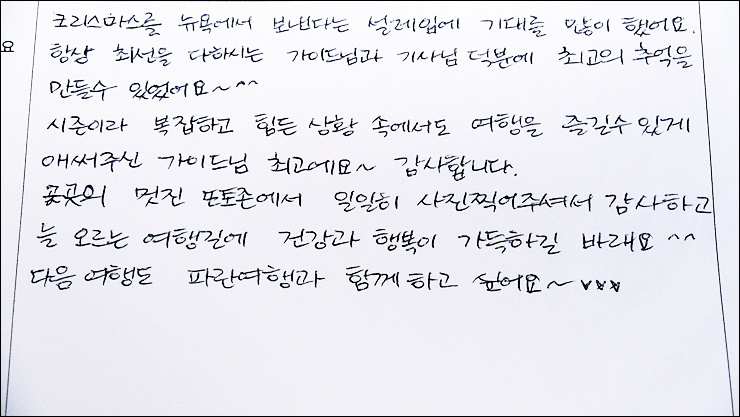 크리스마스를 뉴욕에서 보낸다는 설레임에 기대를 많이 했어요.
요
항상 최선을 다하시는 가이드님과 기사님 덕분에 최고의 추억을
만들수 있었어요~^^
시즌이라 복잡하고 힘든 상황 속에서도 여행을 즐길수 있게
애써주신 가이드님 최고에요~ 감사합니다.
곳곳의 멋진 포토존에서 일일히 사진찍어주셔서 감사하고
늘 오르는 여행길에 건강과 행복이 가득하길 바래요 ^^
다음 여행도 파란여행과 함께 하고 싶어요~ ♥♥♥